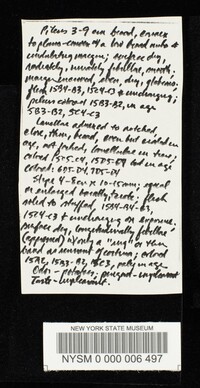 Pileus 3-9 cm broad, convex
to plano-convex & a low broad umbo &
undulating margin; surface dry,
innately, minutely fibrillose, smooth;
margin incurved, even, dry, glabrous;
flesh 15B4-B3, 15C4-C3 & unchanging;
pileus colored 15B3-B2, in age
5B3-B2, 5C4-C3
Lamellae adnexed to notched,
close, thin, broad, even but eroded in
age, not forked, lamellulae in tiers;
colored 5C5-C4, 15D5-D4 but in age
colored: 6D5-D4, 7D5-D4
Stipe 4-8 cm x 10-15mm; equal
or enlarged basally, terete; flesh
solid to stuffed, 15B4-B4
15C4-C3 & unchanging on exposure;
surface dry, longitudinally fibrillose
(appressed) & having a "ring" or thin
band as remnant of cortina; colored
15A2, 15B3-B2, 15C3, paler in age
Odor - potatoes, pungent - unpleasant
Taste - unpleasant.
NEW YORK STATE MUSEUM
NYSM 0 000 006 497